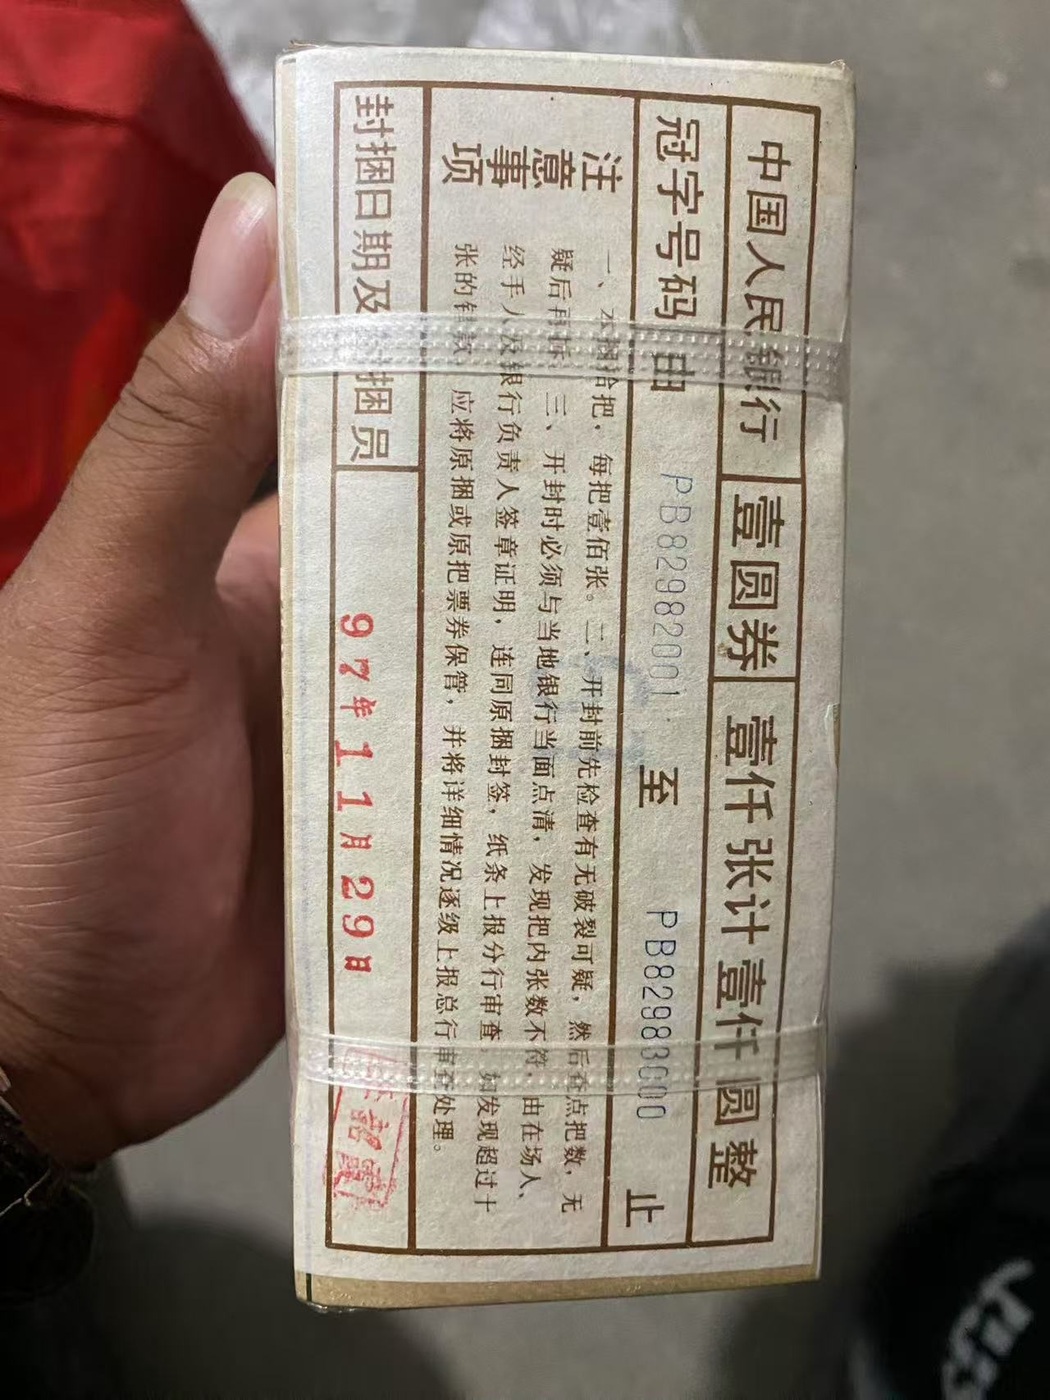 中国人民银行 壹圆券 壹仟张计壹仟圆整
冠字号码 由 PB82982001 至 PB82983000 止
注意事项
一、本捆拾把，每把壹佰张。二、开封前先检查有无破裂可疑，然后查点把数，无
疑后再拆。三、开封时必须与当地银行当面点清，发现把内张数不符，由在场人、
经手人及银行负责人签章证明，连同原捆封签，纸条上报分行审查。如发现超过十
张的错款，应将原捆或原把票券保管，并将详细情况逐级上报总行审查处理。
封捆日期及封捆员 97年11月29日